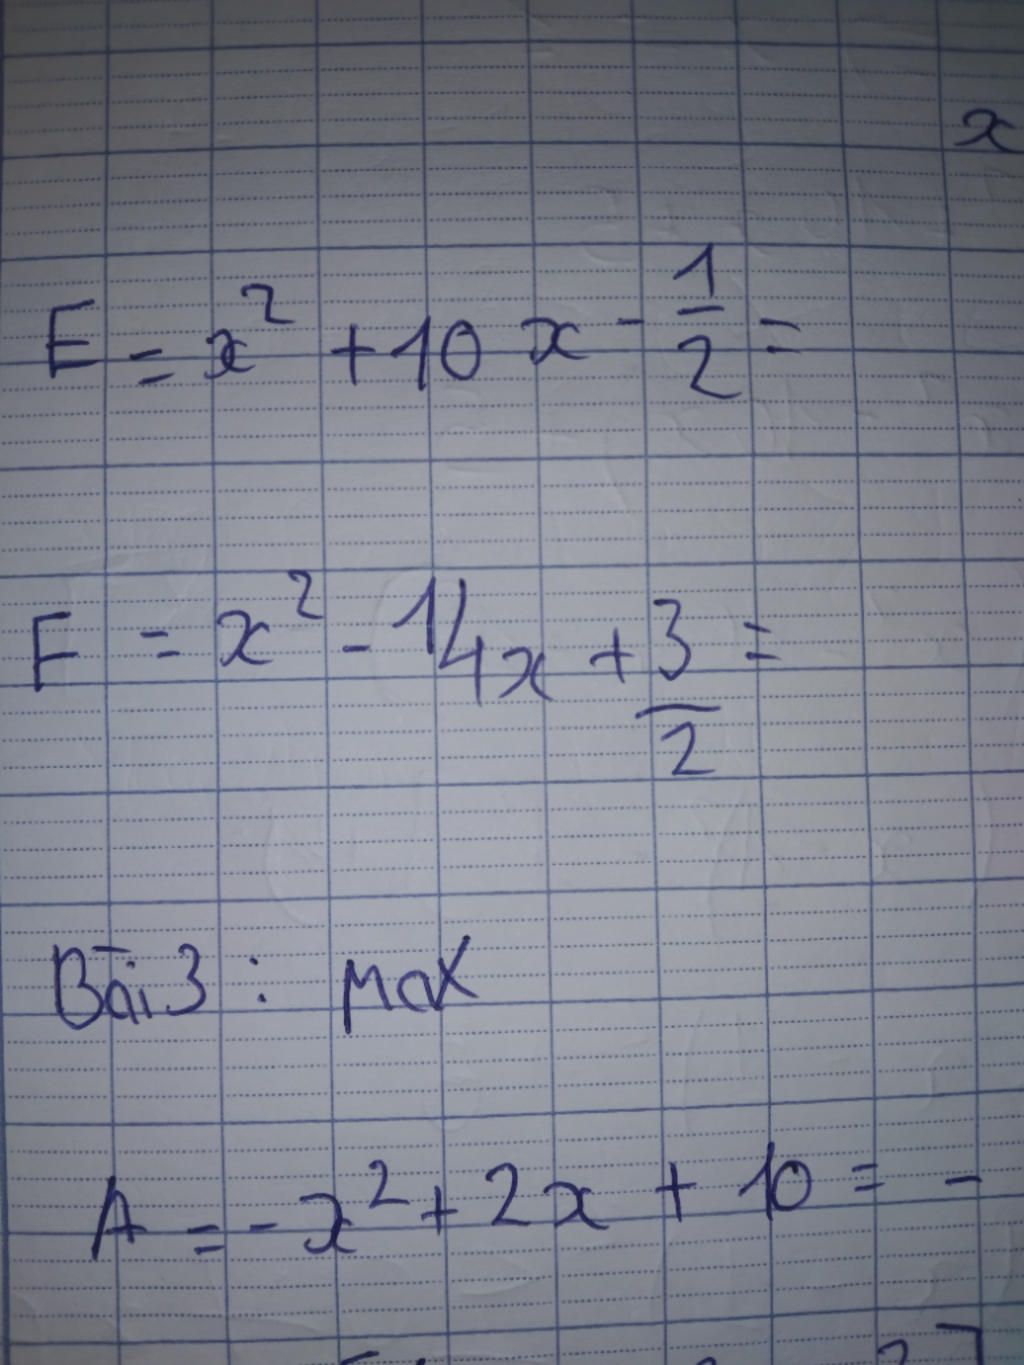 x
E = x² + 10x - 1/2 =
F = x² - 14x + 3/2 =
Bài 3 : Max
A = - x² + 2x + 10 = -